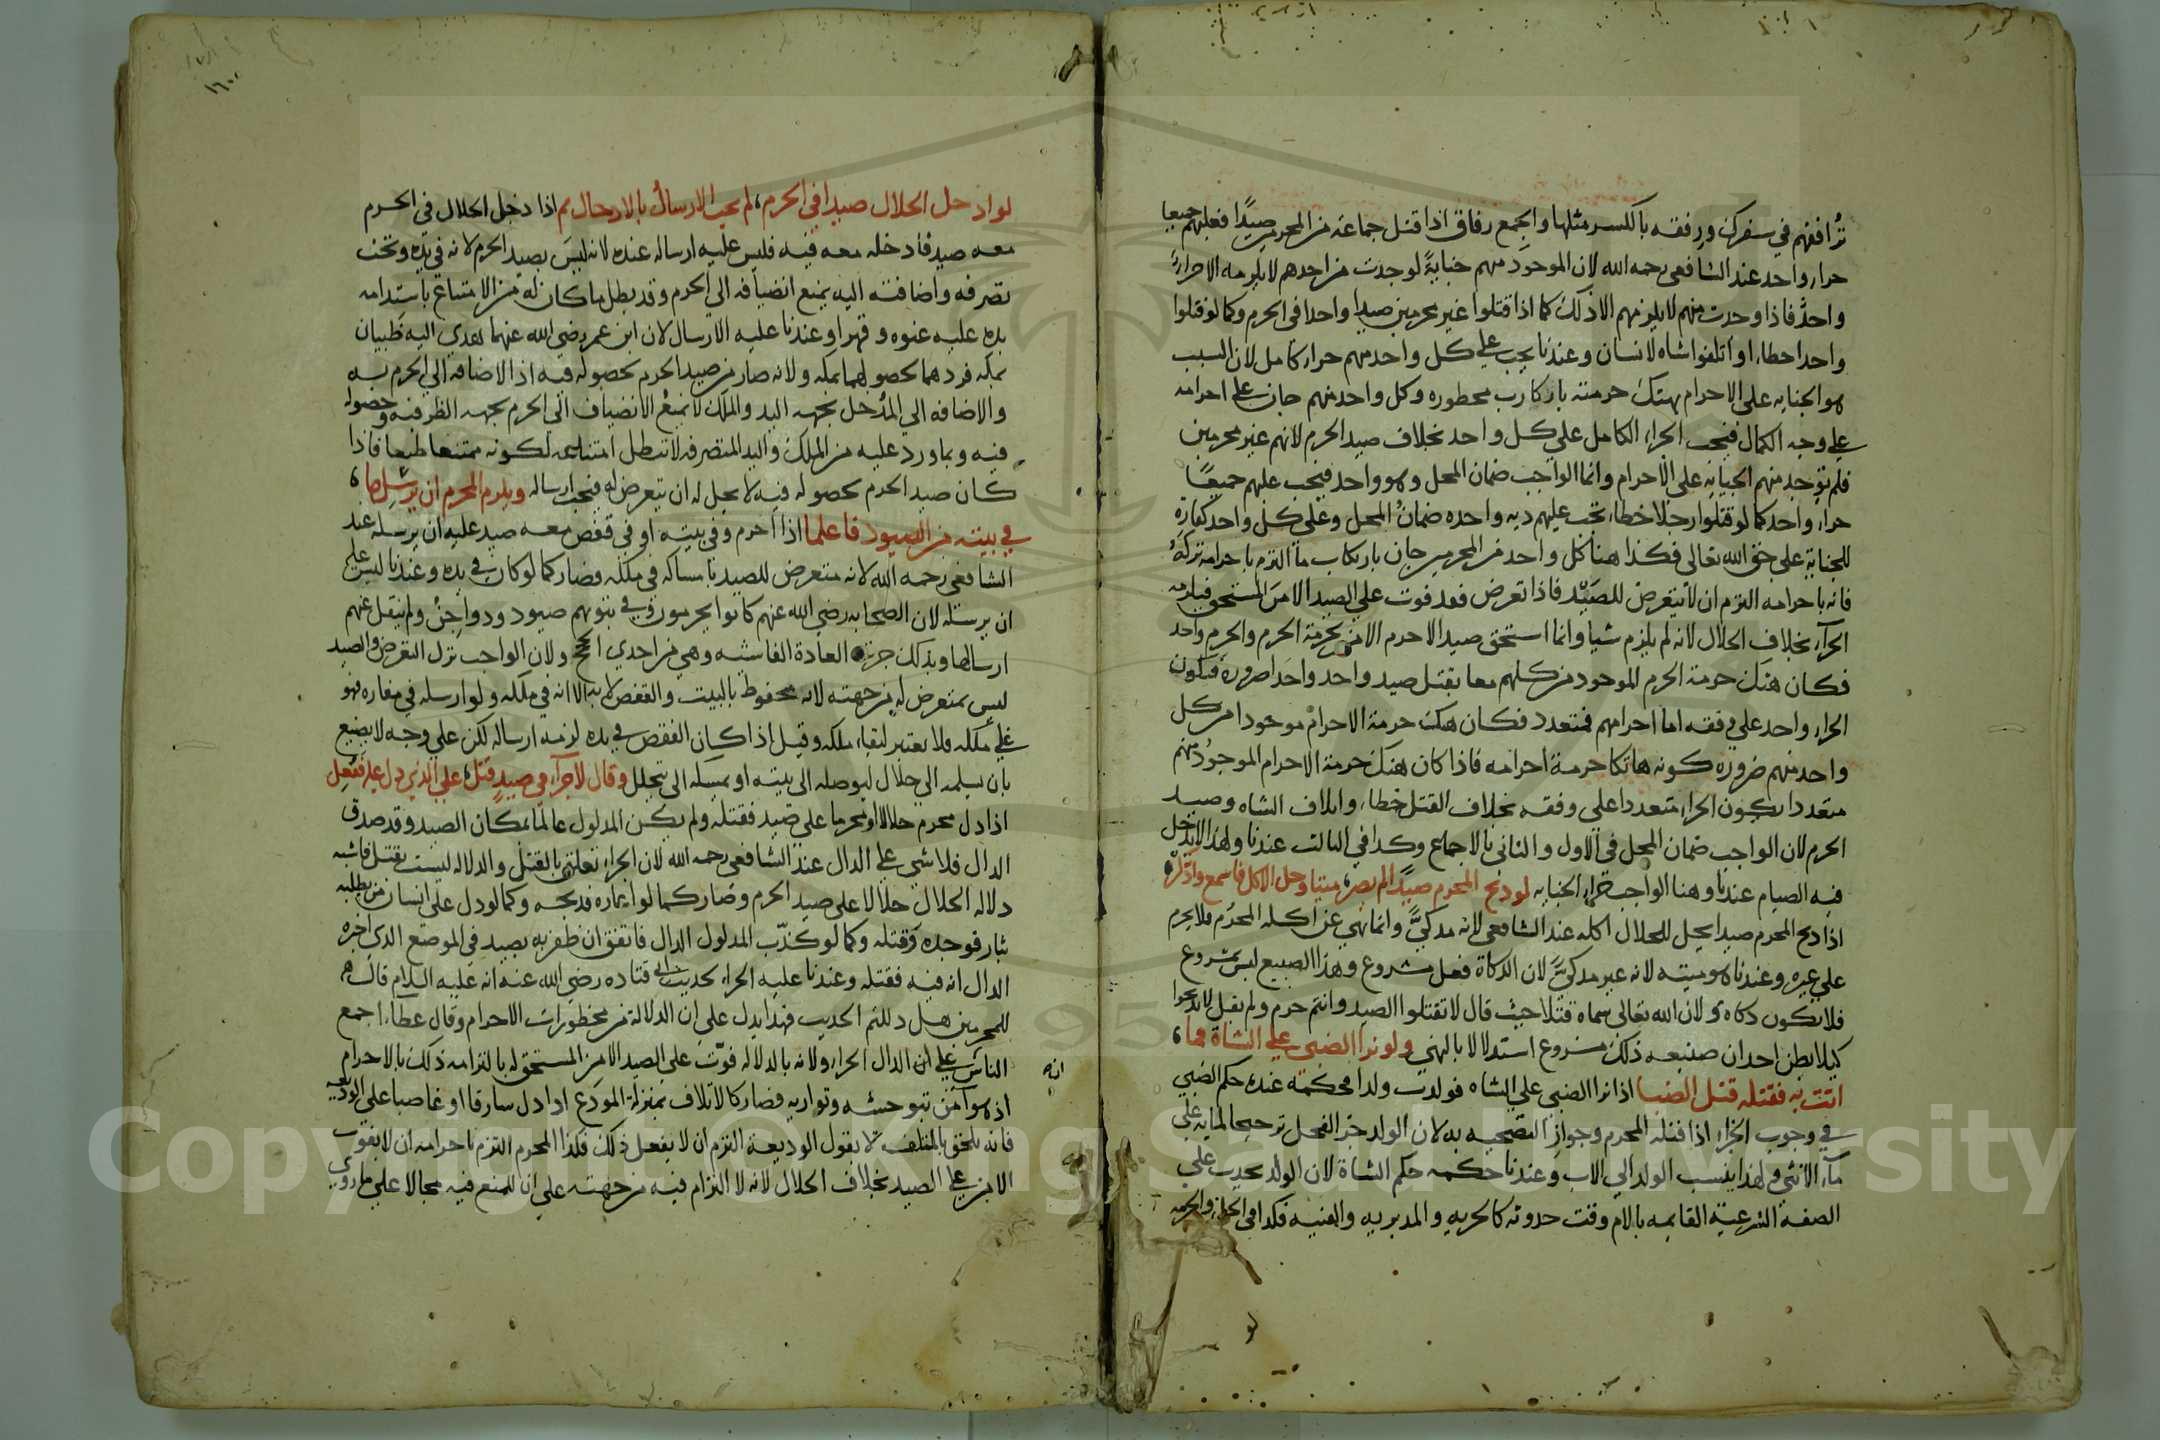 ترافقهم في سفرك ورفقه بالكسر مثلها والجمع رفاق اذا قتل جماعة من المحرمين صيدا فعليهم جميعا
جزاء واحد عند الشافعي رحمه الله لان الموجود منهم جناية لو وجدت من احدهم لا يلزمه الا جزاء
واحد فاذا وجدت منهم لا يلزمهم الا ذلك كما اذا قتلوا غير محرمين صيدا واحدا في الحرم وكما لو قتلوا
واحدا خطاء او اتلفوا شاه لانسان وعندنا يجب علي كل واحد منهم جزاء كامل لان السبب
هو الجنايه علي الاحرام بهتك حرمته بارتكاب محظوره وكل واحد منهم جان علي احرامه
علي وجه الكمال فيجب الجزاء الكامل علي كل واحد بخلاف صيد الحرم لانهم غير محرمين
فلم توجد منهم الجنايه علي الاحرام وانما الواجب ضمان المحل وهو واحد فيجب عليهم جميعا
جزاء واحد كما لو قتلوا رجلا خطاء تجب عليهم ديه واحده ضمان المحل وعلي كل واحد كفارة
للجناية علي حق الله تعالي فكذا هنا كل واحد من المحرمين جان بارتكاب ما التزم باحرامه تركه
فانه باحرامه التزم ان لا يتعرض للصيد فاذا تعرض فقد فوت علي الصيد الامن المستحق فيلزمه
الجزاء بخلاف الحلال لانه لم يلتزم شيا وانما استحق صيد الحرم الامن بحرمة الحرم والحرم واحد
فكان هتك حرمة الحرم الموجود من كلهم معا بقتل صيد واحد واحدا ضرورة فيكون
الجزاء واحد علي وفقه اما احرامهم فمتعدد فكان هتك حرمة الاحرام موجودا من كل
واحد منهم ضرورة كونه هاتكا حرمة احرامه فاذا كان هتك حرمة الاحرام الموجود منهم
متعددا يكون الجزاء متعددا علي وفقه بخلاف القتل خطاء واتلاف الشاه وصيد
الحرم لان الواجب ضمان المحل في الاول والثاني بالاجماع وكذا في الثالث عندنا ولهذا لا يدخل
فيه الصيام عندنا وهنا الواجب جزاء الجنايه لو ذبح المحرم صيدا لم يصر ميتا وحل الاكل فاسمع وادكر
اذا ذبح المحرم صيدا يحل للحلال اكله عند الشافعي لانه مذكي وانما نهي عن اكله المحرم فلا يحرم
علي غيره وعندنا هو ميته لانه غير مذكي لان الذكاة فعل مشروع وهذا الصنيع ليس بمشروع
فلا يكون ذكاه ولان الله تعالي سماه قتلا حيث قال لا تقتلوا الصيد وانتم حرم ولم يقل لا تذبحوا
كيلا يظن احد ان صنيعه ذلك مشروع استدلالا بالنهي ولو نزا الضبي علي الشاة فما
اتت به فقتله قتل الضبا اذا نزا الضبي علي الشاه فولدت ولدا فحكمه عنده حكم الضبي
في وجوب الجزاء اذا قتله المحرم وجواز التضحيه به لان الولد جزء الفحل ترجيحا لمايه علي
ماء الانثي ولهذا ينسب الولد الي الاب وعندنا حكمه حكم الشاة لان الولد يحدث علي
الصفة الشرعية القايمه بالام وقت حدوثه كالحريه والمدبريه والقنيه فكذا في الحل والحرمه
لو
لو ادخل الحلال صيدا في الحرم لم يجب الارسال بالادخال ثم اذا دخل الحلال في الحرم
معه صيد فادخله معه فيه فليس عليه ارساله عنده لانه ليس بصيد الحرم لانه في يده وتحت
تصرفه واضافته اليه يمنع انضيافه الي الحرم وقد بطل ما كان له من الامتناع باستدامه
يده عليه عنوه وقهرا وعندنا عليه الارسال لان ابن عمر رضي الله عنهما اهدي اليه ظبيان
بمكه فردهما لحصولهما بمكه ولانه صار من صيد الحرم بحصوله فيه اذ الاضافه الي الحرم به
والاضافه الي المدخل بجهه اليد والملك لا يمنع الانضياف الي الحرم بجهه الظرفيه وحصوله
فيه وبما ورد عليه من الملك واليد المتصرفه لا تبطل امتناعه لكونه ممتنعا طبعا فاذا
كان صيد الحرم بحصوله فيه لا يحل له ان يتعرض له فيجب ارساله ويلزم المحرم ان يرسل ما
في بيته من الصيود فاعلما اذا احرم وفي بيته او في قفص معه صيد عليه ان يرسله عند
الشافعي رحمه الله لانه متعرض للصيد بامساكه في ملكه فصار كما لو كان في يده وعندنا ليس علي
ان يرسله لان الصحابه رضي الله عنهم كانوا يحرمون وفي بيوتهم صيود ودواجن ولم ينقل عنهم
ارسالها وبذلك جرت العادة الفاشيه وهي من احدي الحجج ولان الواجب ترك التعرض والصيد
ليس بمتعرض له من جهته لانه محفوظ بالبيت والقفص لا به الا انه في ملكه ولو ارسله في مفازه فهو
علي ملكه فلا يعتبر لبقاء ملكه وقيل اذا كان القفص في يده لزمه ارساله لكن علي وجه لا يضيع
بان يسلمه الي حلال ليوصله الي بيته او يمسكه الي تحلل وقال لا جزاء في صيد قتل علي الذي دل عليه ففعل
اذا دل محرم حلالا او محرما علي صيد فقتله ولم يكن المدلول عالما بمكان الصيد وقد صدق
الدال فلا شي علي الدال عند الشافعي رحمه الله لان الجزاء تعلق بالقتل والدلاله ليست بقتل فاشبه
دلاله الحلال حلالا علي صيد الحرم وصار كما لو اعاره فذبحه وكما لو دل علي انسان من يطلبه
بثار فوجده وقتله وكما لو كذب المدلول الدال فاتفق ان ظفر به بصيد في الموضع الذي اخبره
الدال انه فيه فقتله وعندنا عليه الجزاء لحديث ابي قتاده رضي الله عنه انه عليه السلام قال
للمحرمين هل دللتم الحديث فهذا يدل علي ان الدلالة من محظورات الاحرام وقال عطاء اجمع
الناس علي ان الدال الجزاء ولانه بالدلاله فوت علي الصيد الامن المستحق له بالتزامه ذلك بالاحرام
انه
اذ هو امن بتوحشه وتواريه فصار كالاتلاف بمنزلة المودع اذا دل سارقا او غاصبا علي الوديعه
فانه يلحق بالمتلف لا بقول الوديعة التزم ان لا يفعل ذلك فكذا المحرم التزم باحرامه ان لا يفوت
الامن علي الصيد بخلاف الحلال لانه لا التزام فيه من جهته علي ان للمنع فيه مجالا علي ما روي
Copyright © King Saud University